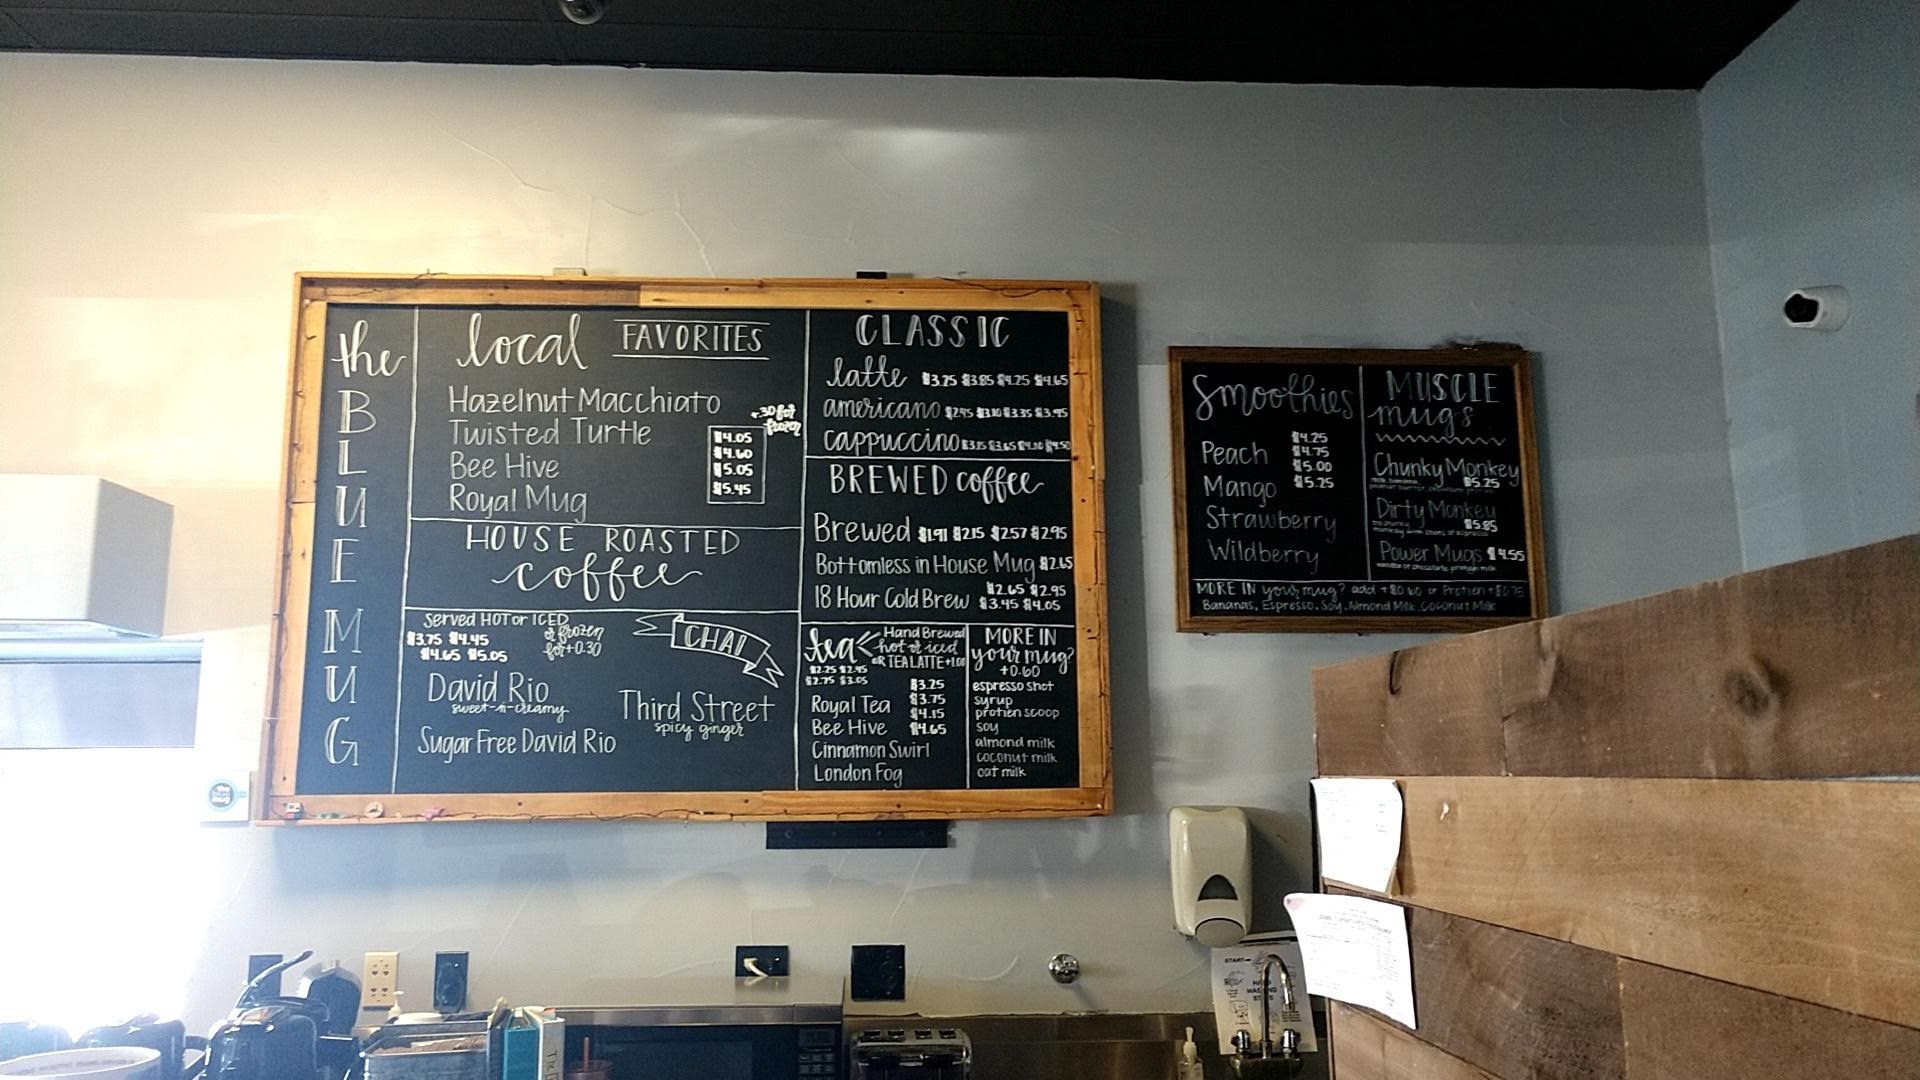 the
BLUE
MUG
local FAVORITES
Hazelnut Macchiato
Twisted Turtle
Bee Hive
Royal Mug
+.30 for
frozen
$4.05
$4.60
$5.05
$5.45
HOUSE ROASTED
coffee
Served HOT or ICED
$3.75 $4.45
$4.65 $5.05
or frozen
for +0.30
CHAI
David Rio
sweet-n-creamy
Third Street
spicy ginger
Sugar Free David Rio
CLASSIC
latte $3.25 $3.85 $4.25 $4.65
americano $2.45 $3.10 $3.35 $3.95
cappuccino $3.15 $3.65 $4.10 $4.50
BREWED coffee
Brewed $1.91 $2.15 $2.57 $2.95
Bottomless in House Mug $2.65
18 Hour Cold Brew $2.65 $2.95
$3.45 $4.05
tea
Hand Brewed
hot or iced
OR TEA LATTE +1.00
$2.25 $2.45
$2.75 $3.05
Royal Tea
Bee Hive
Cinnamon Swirl
London Fog
$3.25
$3.75
$4.15
$4.65
MORE IN
your mug?
+0.60
espresso shot
syrup
protien scoop
soy
almond milk
coconut milk
oat milk
Smoothies
Peach
Mango
Strawberry
Wildberry
$4.25
$4.75
$5.00
$5.25
MUSCLE
mugs
Chunky Monkey
$5.25
Dirty Monkey
$5.85
Power Mugs $4.55
MORE IN your mug? add +$0.60 or Protien +$0.75
Bananas, Espresso, Soy, Almond Milk, Coconut Milk
the
mug
START